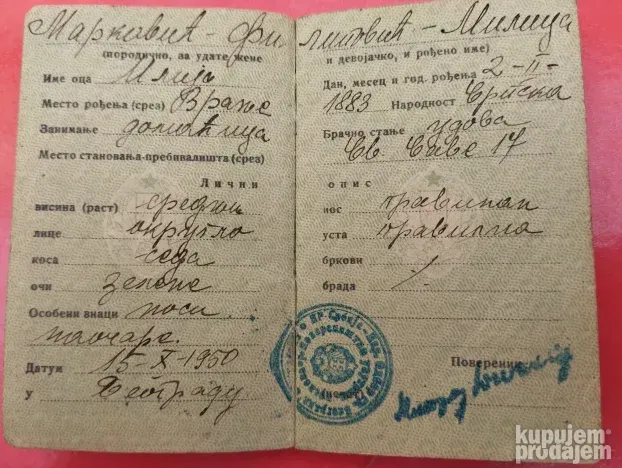 Марковић - Филиповић - Милица
(породично, за удате жене и девојачко, и рођено име)
Име оца Илија
Место рођења (срез) Врање
Занимање домаћица
Место становања-пребивалишта (срез)
Дан, месец и год. рођења 2-II-
1883 Народност Српска
Брачно стање удова
Св. Саве 17
Лични опис
висина (раст) средњи
лице округло
коса седа
очи зелене
Особени знаци носи
наочаре.
Датум 15-X-1950
У Београду
нос правилан
уста правилна
бркови /
брада /
Повереник,
kupujem
prodajem